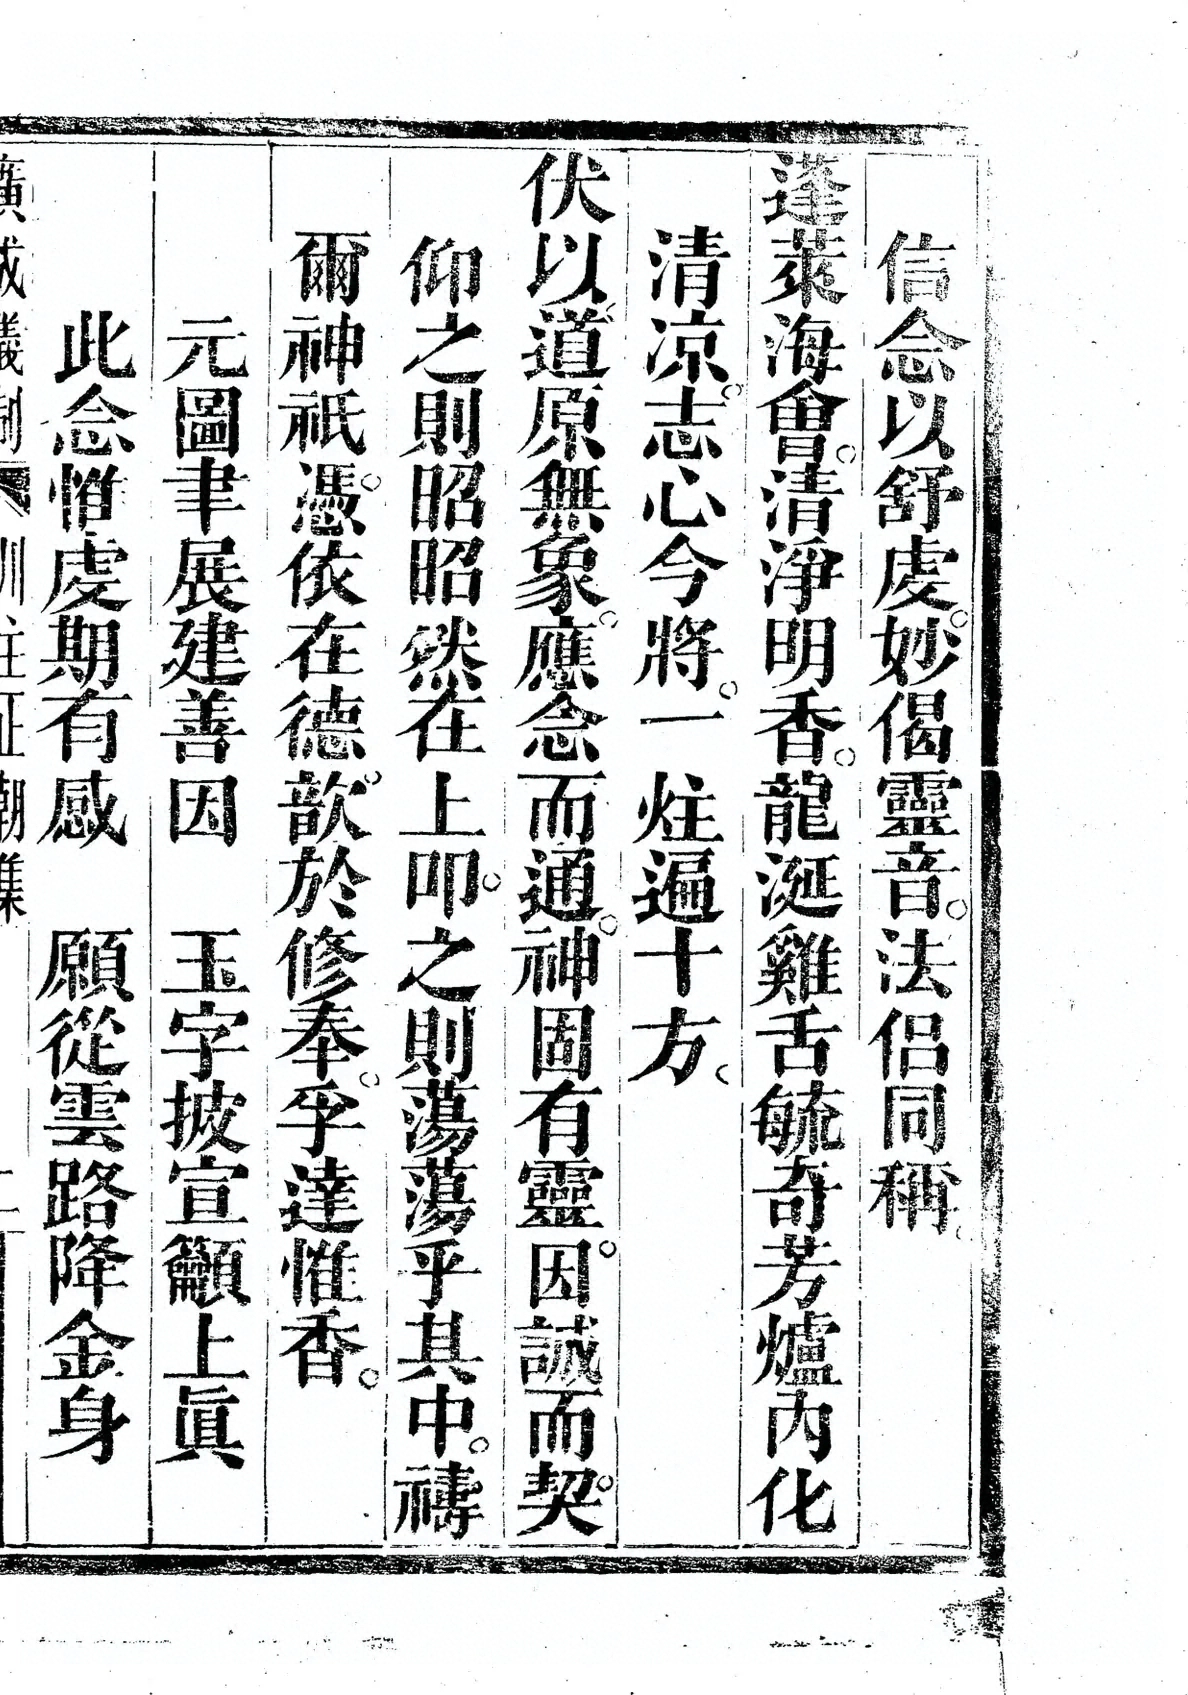 信念以舒虔。妙偈靈音。法侶同稱。
蓬萊海會。清淨明香。龍涎雞舌毓奇芳爐內化
清凉。志心今將。一炷遍十方。
伏以。道原無象。應念而通。神固有靈。因誠而契。
仰之則昭昭然在上。叩之則蕩蕩乎其中。禱
爾神祇。憑依在德。歆於修奉。孚達惟香。
元圖聿展建善因 玉字披宣籲上眞
此念惟虔期有感 願從雲路降金身
廣成儀制